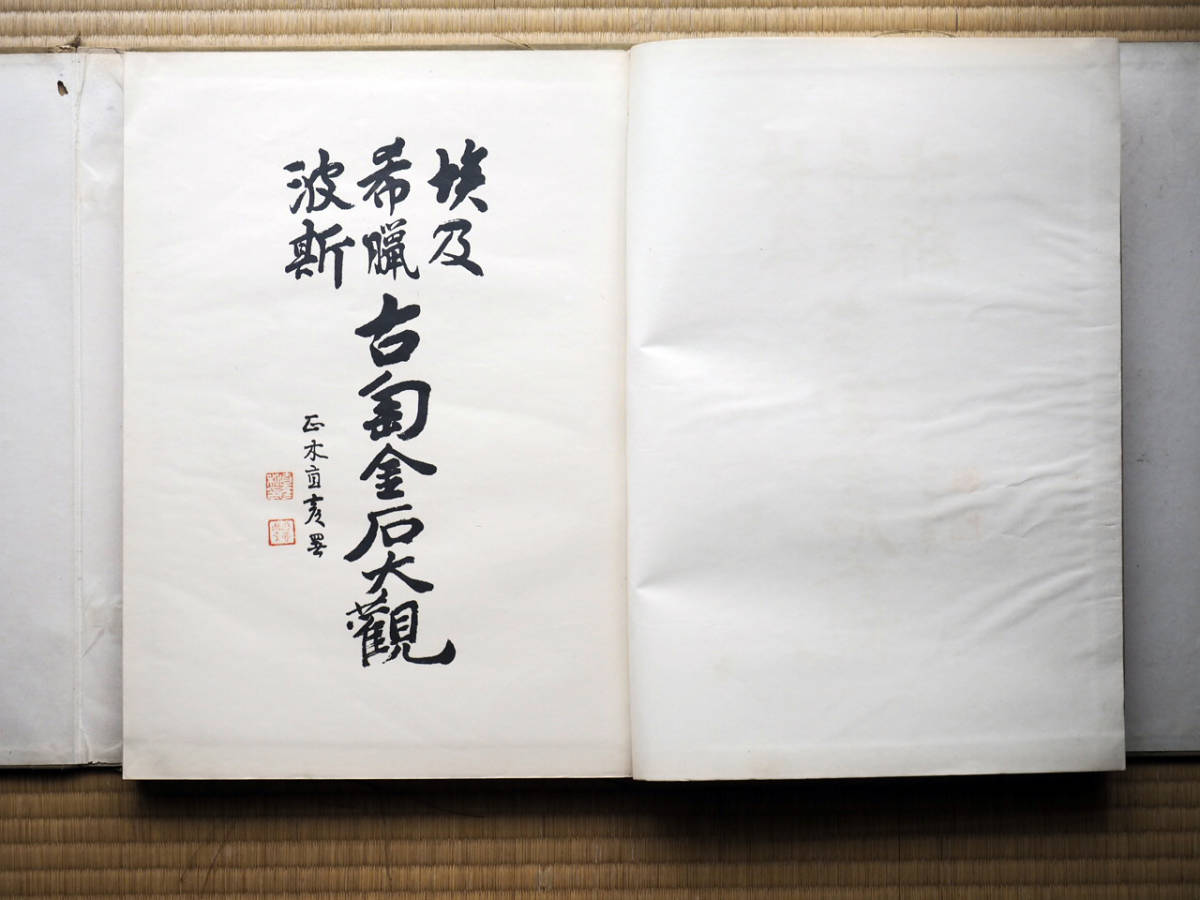 埃及
希臘
波斯
古匋金石大觀
正木直彦署